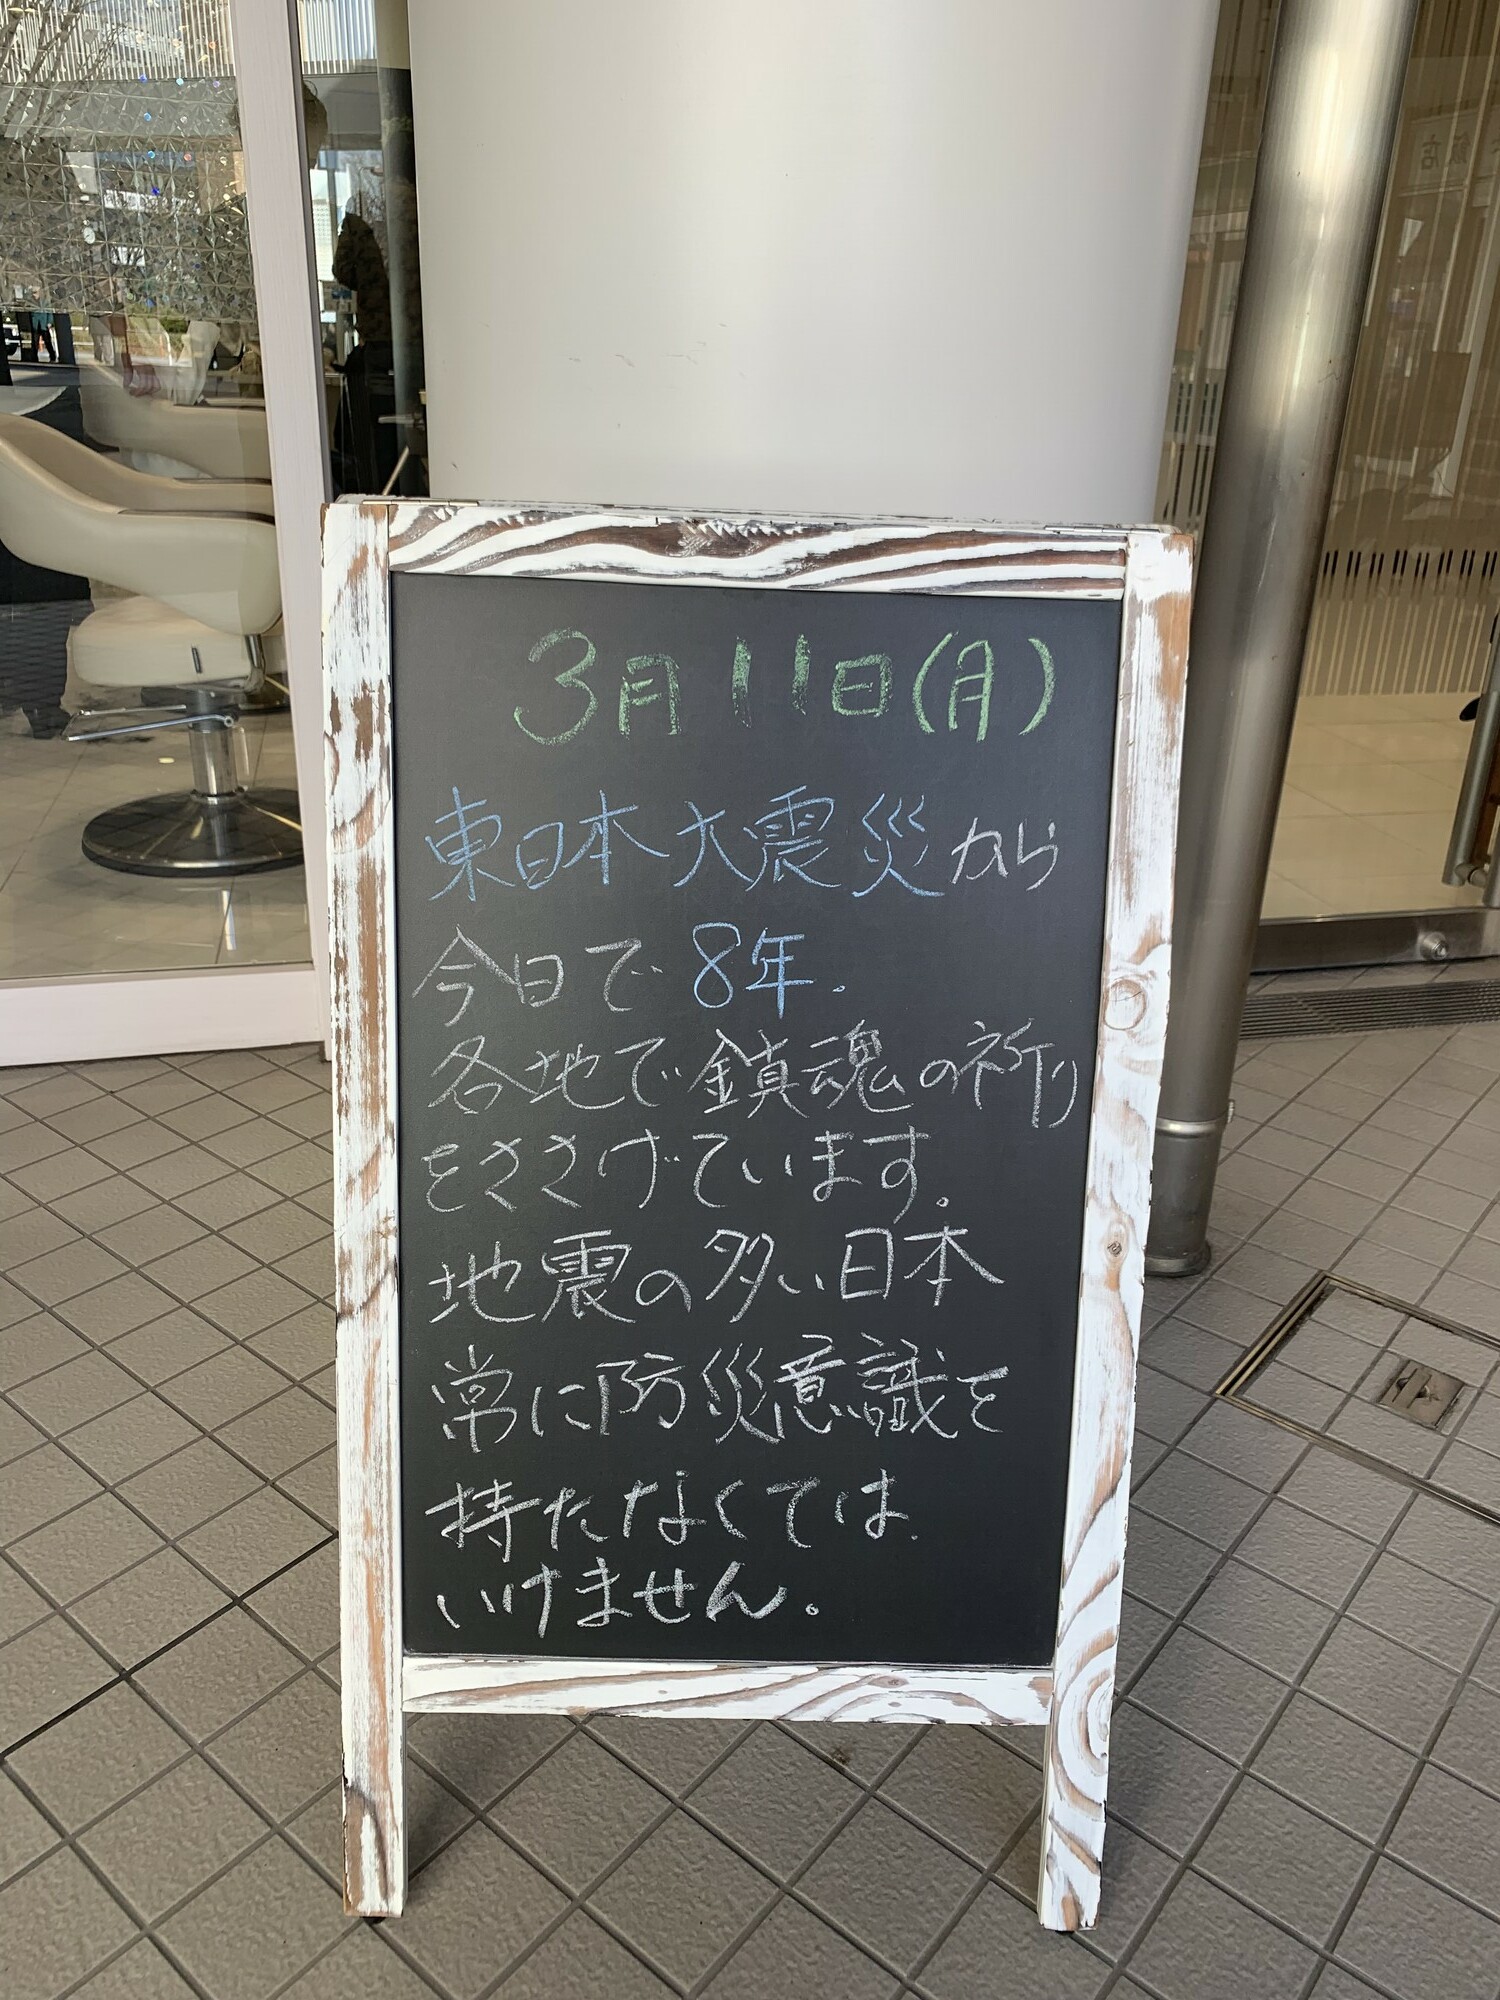 3月11日(月)
東日本大震災から
今日で8年.
各地で鎮魂の祈り
をささげています。
地震の多い日本
常に防災意識を
持たなくては
いけません。
飯店